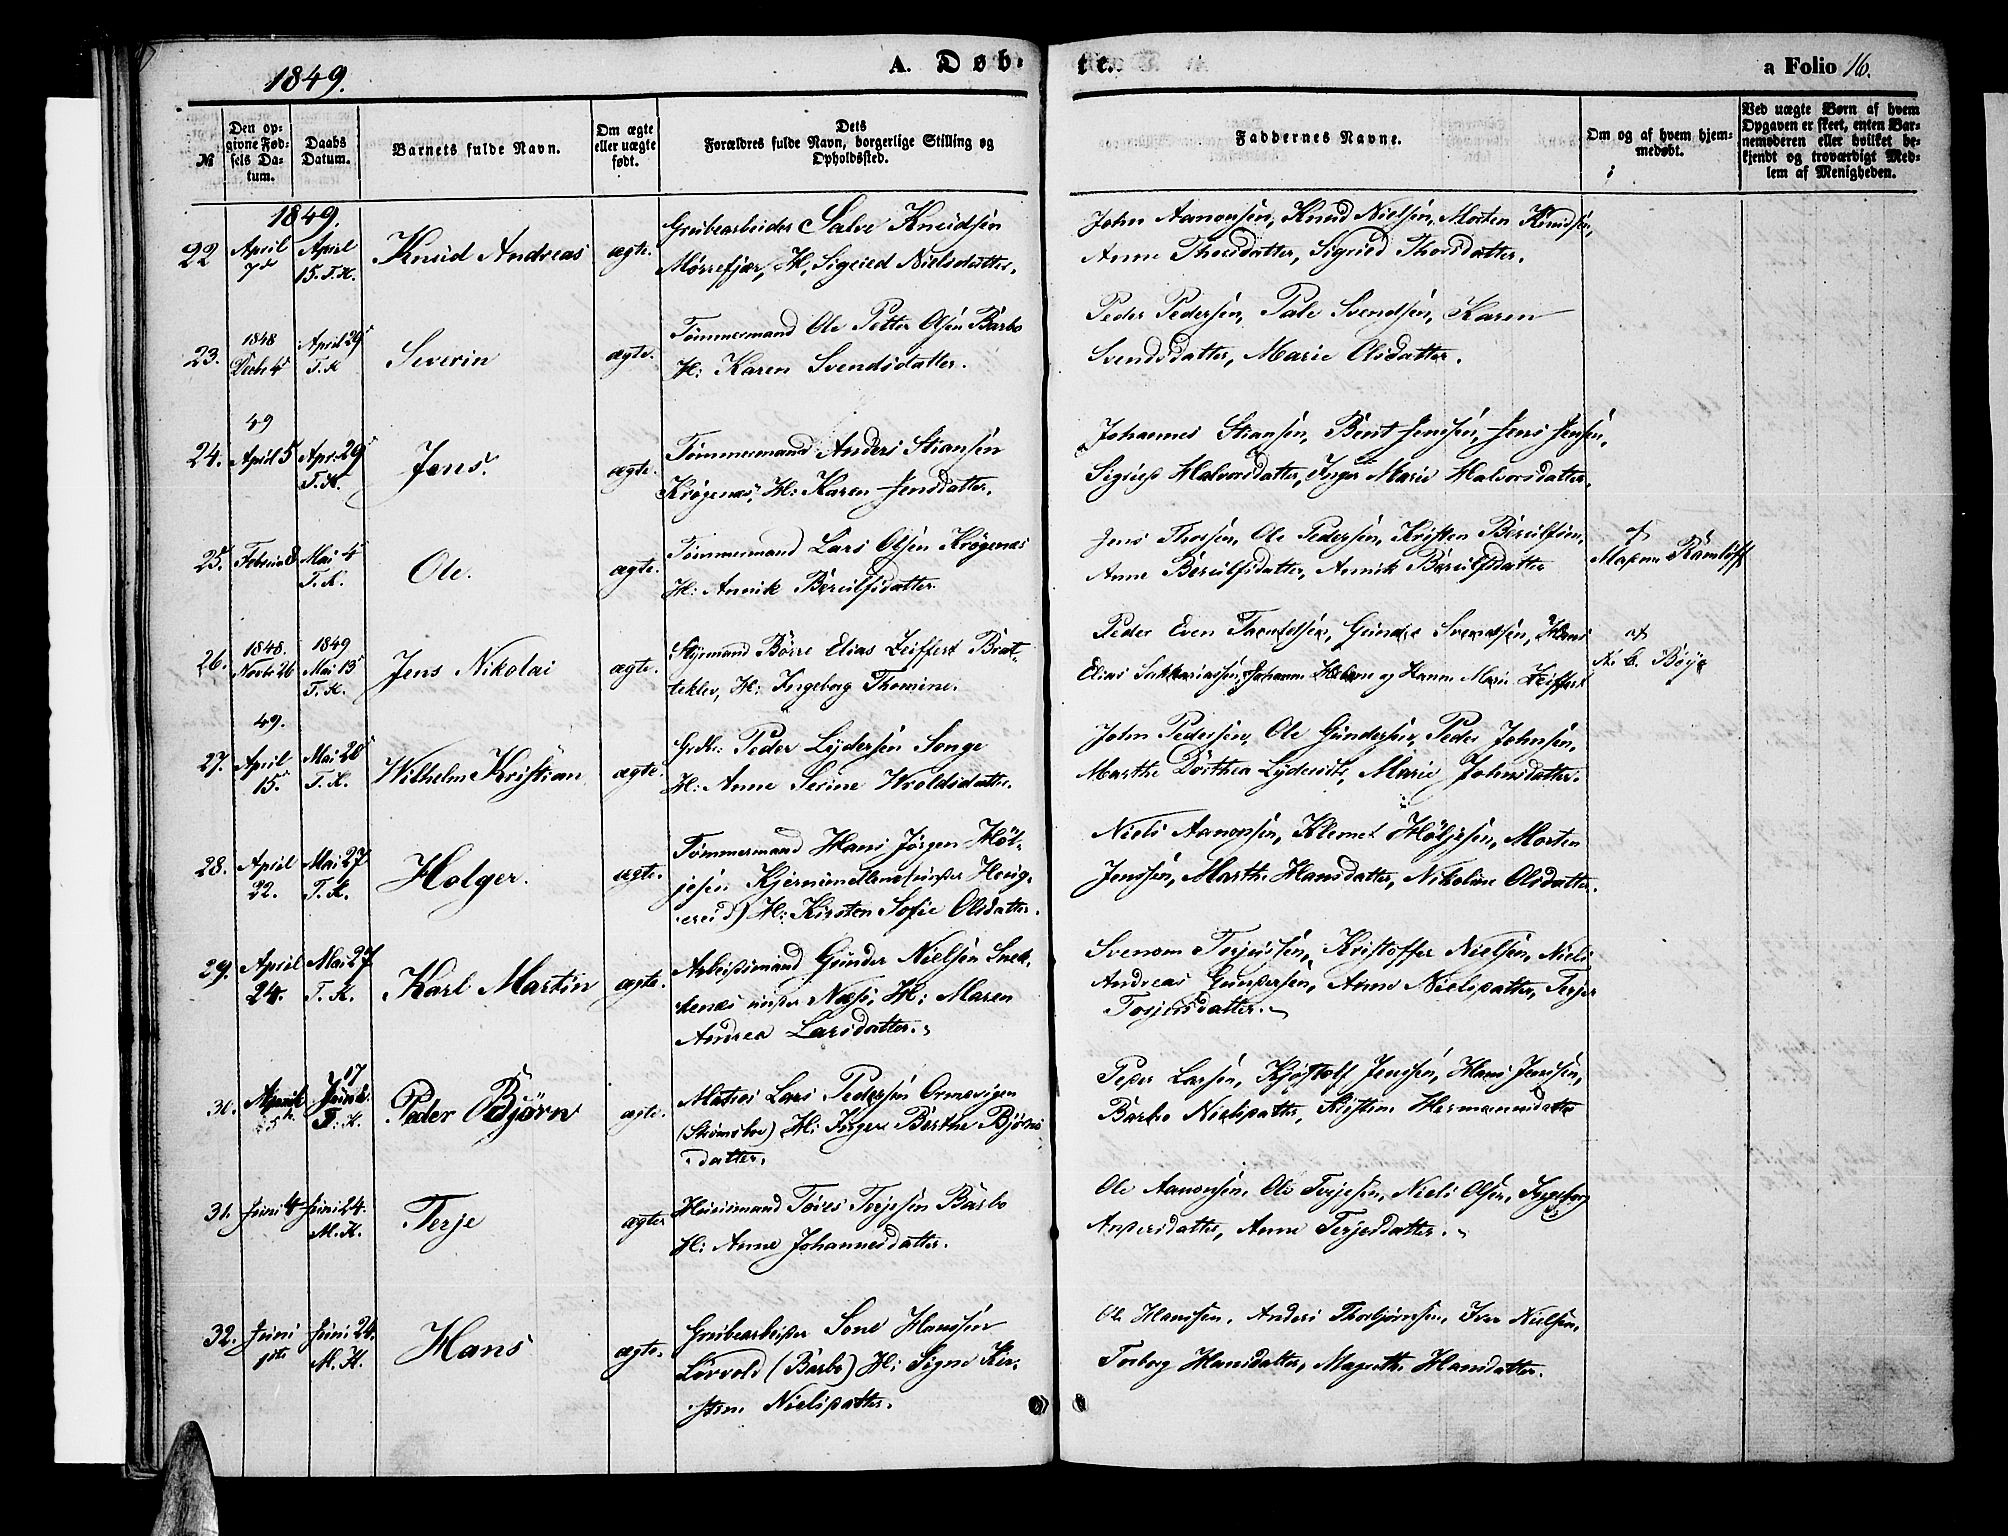 1849.
A. Døb-
te.
a Folio 16.
№
Den op-
givne Fød-
sels Da-
tum.
Daabs
Datum.
Barnets fulde Navn.
Om ægte
eller uægte
født.
Dets
Forældres fulde Navn, borgerlige Stilling og
Opholdssted.
Faddernes Navne.
Om og af hvem hjem-
medøbt.
Ved uægte Børn af hvem
Opgaven er skeet, enten Bar-
nemoderen eller hvilket be-
kjendt og troværdigt Med-
lem af Menigheden.
1849.
22 April 7de April 15. T. K. Knud Andreas ægte. Grubearbeider Salve Knudsen
Mørrefjær, H. Sigried Nielsdatter.
John Aanonsen, Knud Nielsen, Morten Knudsen,
Anne Thorsdatter, Sigried Thorsdatter.
23. 1848 Decbr 4 April 29 T. K Severin ægte. Tømmermand Ole Petter Olsen Barbo
H: Karen Svendsdatter.
Peder Pedersen, Pale Svendsen, Karen
Svendsdatter, Marie Olsdatter.
49
24. April 5 Apr. 29 T. K. Jens. ægte. Tømmermand Anders Stiansen
Krøgenæs, H: Karen Jensdatter.
Johannes Stiansen, Bent Jenssen, Jens Jensen,
Sigried Halvorsdatter, Inger Marie Halvorsdatter.
25. Februar 8 Mai 4 T. K. Ole. ægte. Tømmermand Lars Olsen Krøgenæs
H: Annik Berulfsdatter
Jens Thorsen, Ole Pedersen, Kristen Berulfsen,
Anne Berulfsdatter, Annik Berulfsdatter
af
Madame
26. 1848. Novbr 26 1849 Mai 13 T. K. Jens Nikolai ægte. Styrmand Børre Elias Zeiffert Brat-
teklev, H: Ingeborg Thomine.
Peder Even Gunder Svendsen, Hans
Elias Sakkariassen, Johanne Helene og Hanne Marie Zeiffert
af
N. C. Bøye
49.
27. April 15. Mai 20 T. K. Wilhelm Kristian ægte. Grdbr: Peder Lydersen Songe
H: Anne Serine Wroldsdatter.
John Pedersen, Ole Gundersen, Peder Johnsen,
Marthe Dorthea Lydersdtr, Marie Johnsdatter.
28. April 22. Mai 27 T. K. Holger. ægte. Tømmermand Hans Jørgen Høl-
jesen Kjernimellene (under Heig-
ereid) H: Kirsten Sofie Olsdatter.
Niels Aanonsen, Klemet Høljesen, Morten
Jenssen, Marthe Hansdatter, Nikoline Olsdatter.
29. April 24. Mai 27 T. K. Karl Martin ægte. Arbeidsmand Gunder Nielsen Snek-
kenæs under Næs, H: Maren
Andrea Larsdatter.
Svenom Terjussen, Kristoffer Nielsen, Niels
Andreas Gundersen, Anne Nielsdatter, Terjer
Tosjersdatter.
30. April 5te Juni 17 T. K. Peder Bjørn ægte. Matros Lars Pedersen Ormevigen
(Strømsboe) H: Inger Berthe Bjørns-
datter.
Peder Larsen, Kjøstolf Jenssen, Hans Jenssen,
Barbro Nielsdatter, Kirstine Hermannsdatter
31. Juni 4 Juni 24. M. K. Terje ægte Huusmand Tores Terjesen Barbo
H: Anne Johannesdatter.
Ole Aanonsen, Ole Terjesen, Niels Olsen, Ingeborg
Andersdatter, Anne Terjesdatter.
32. Juni 1ste Juni 24. M. K. Hans ægte. Grubearbeider Sone Hanssen
Lørvold (Barbo) H: Signe Kir-
stine Nielsdatter.
Ole Hanssen, Anders Thorbjørnsen, Iver Nielsen,
Torborg Hansdatter, Magrethe Hansdatter.